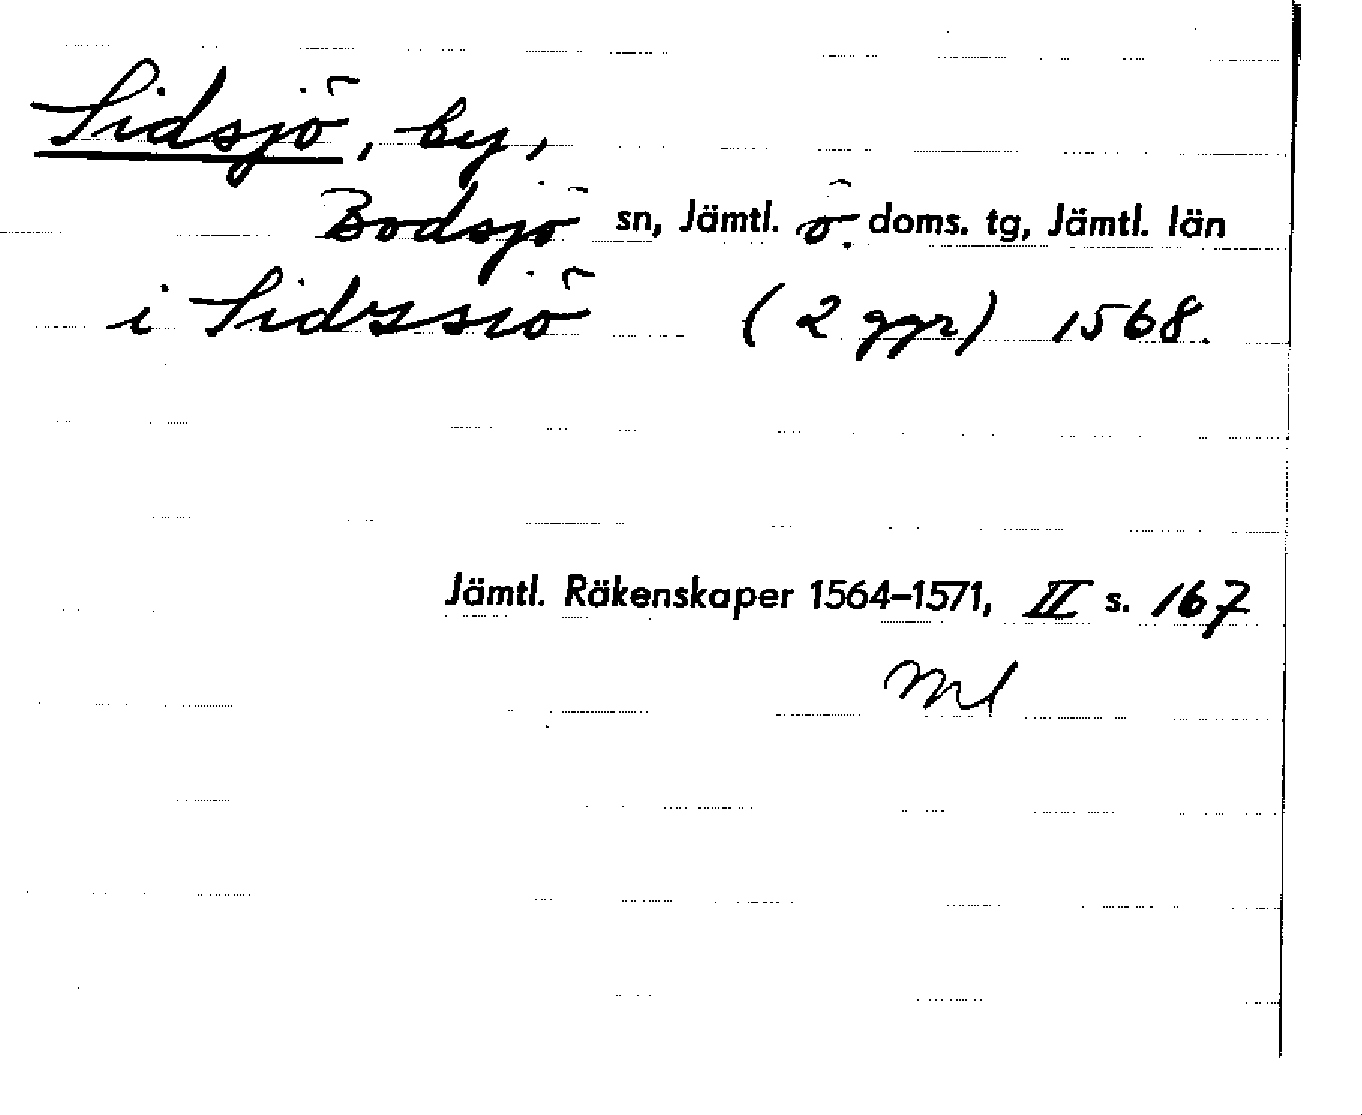 Sidsjö, by,
Bodsjö sn, Jämtl. ö. doms. tg, Jämtl. län
i Sidzssiö (2 ggr) 1568.
Jämtl. Räkenskaper 1564–1571, II s. 167
Ml